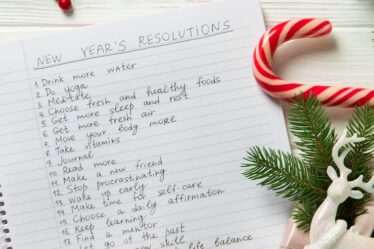 NEW YEAR'S RESOLUTIONS
1. Drink more water
2. Do yoga
3. Meditate
4. Choose fresh and healthy foods
5. Get more sleep and rest
6. Get more fresh air
7. Move your body more
8. Take vitamins
9. Journal
10. Read more
11. Make a new friend
12. Stop procrastinating
13. Wake up early
14. Make time for self-care
15. Choose a daily affirmation
16. Keep learning
17. Find a mentor
go of the past
new skill
life balance